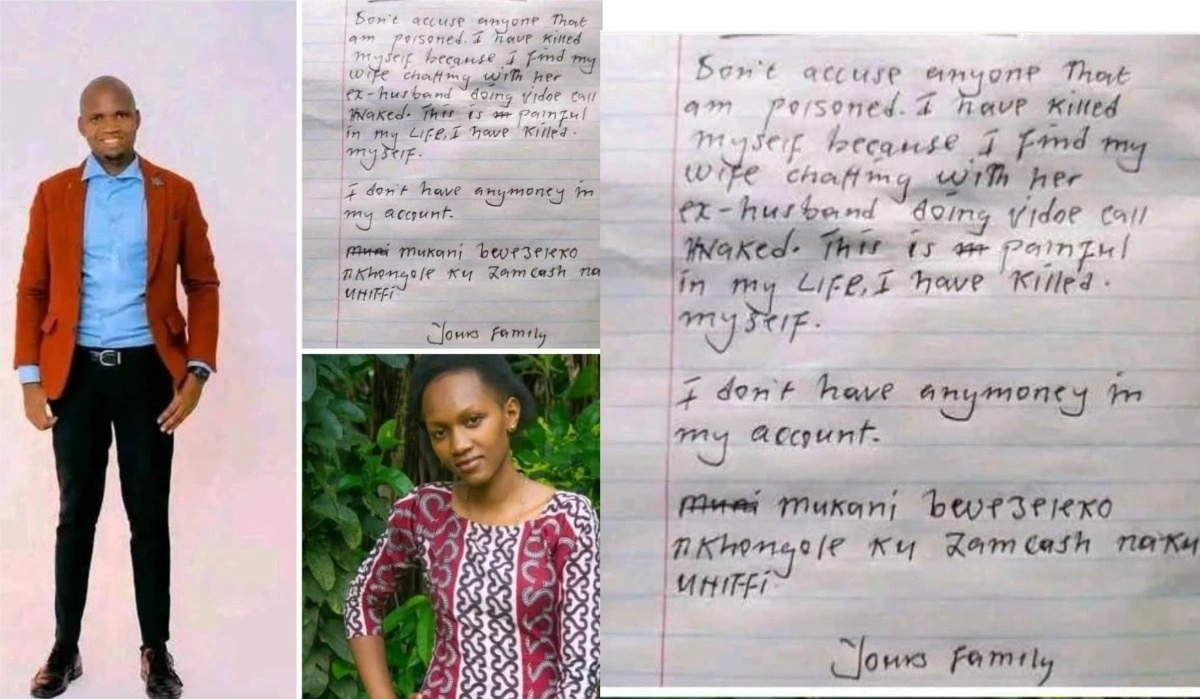 Don't accuse anyone that
am poisoned. I have killed
myself because I find my
wife chatting with her
ex-husband doing vidoe call
Naked. This is m painful
in my LIFE, I have killed.
myself.
I don't have anymoney in
my account.
muni mukani bevezeleko
nkhongole ku Zamcash na
UHIFFi
Yours Family
Don't accuse anyone that
am poisoned. I have killed
myself because I find my
wife chatting with her
ex-husband doing vidoe call
Naked. This is m painful
in my LIFE, I have killed.
myself.
I don't have anymoney in
my account.
muni mukani bevezeleko
nkhongole ku Zamcash naku
UHIFFi
Yours Family